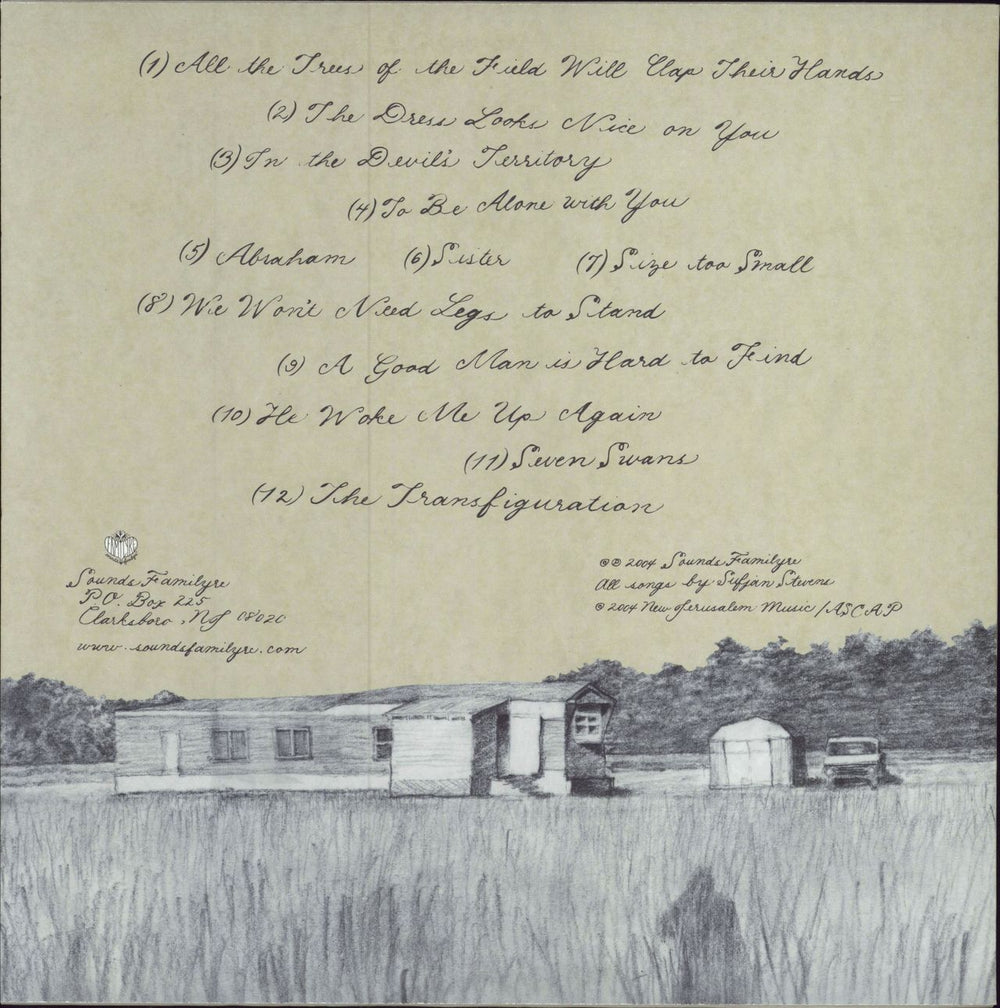 (1) All the Trees of the Field Will Clap Their Hands
(2) The Dress Looks Nice on You
(3) In the Devil's Territory
(4) To Be Alone with You
(5) Abraham (6) Sister (7) Size too Small
(8) We Won't Need Legs to Stand
(9) A Good Man is Hard to Find
(10) He Woke Me Up Again
(11) Seven Swans
(12) The Transfiguration
FAMILYRE
Sounds Familyre
P.O. Box 225
Clarksboro, NJ 08020
www.soundsfamilyre.com
℗© 2004 Sounds Familyre
All songs by Sufjan Stevens
© 2004 New Jerusalem Music / ASCAP